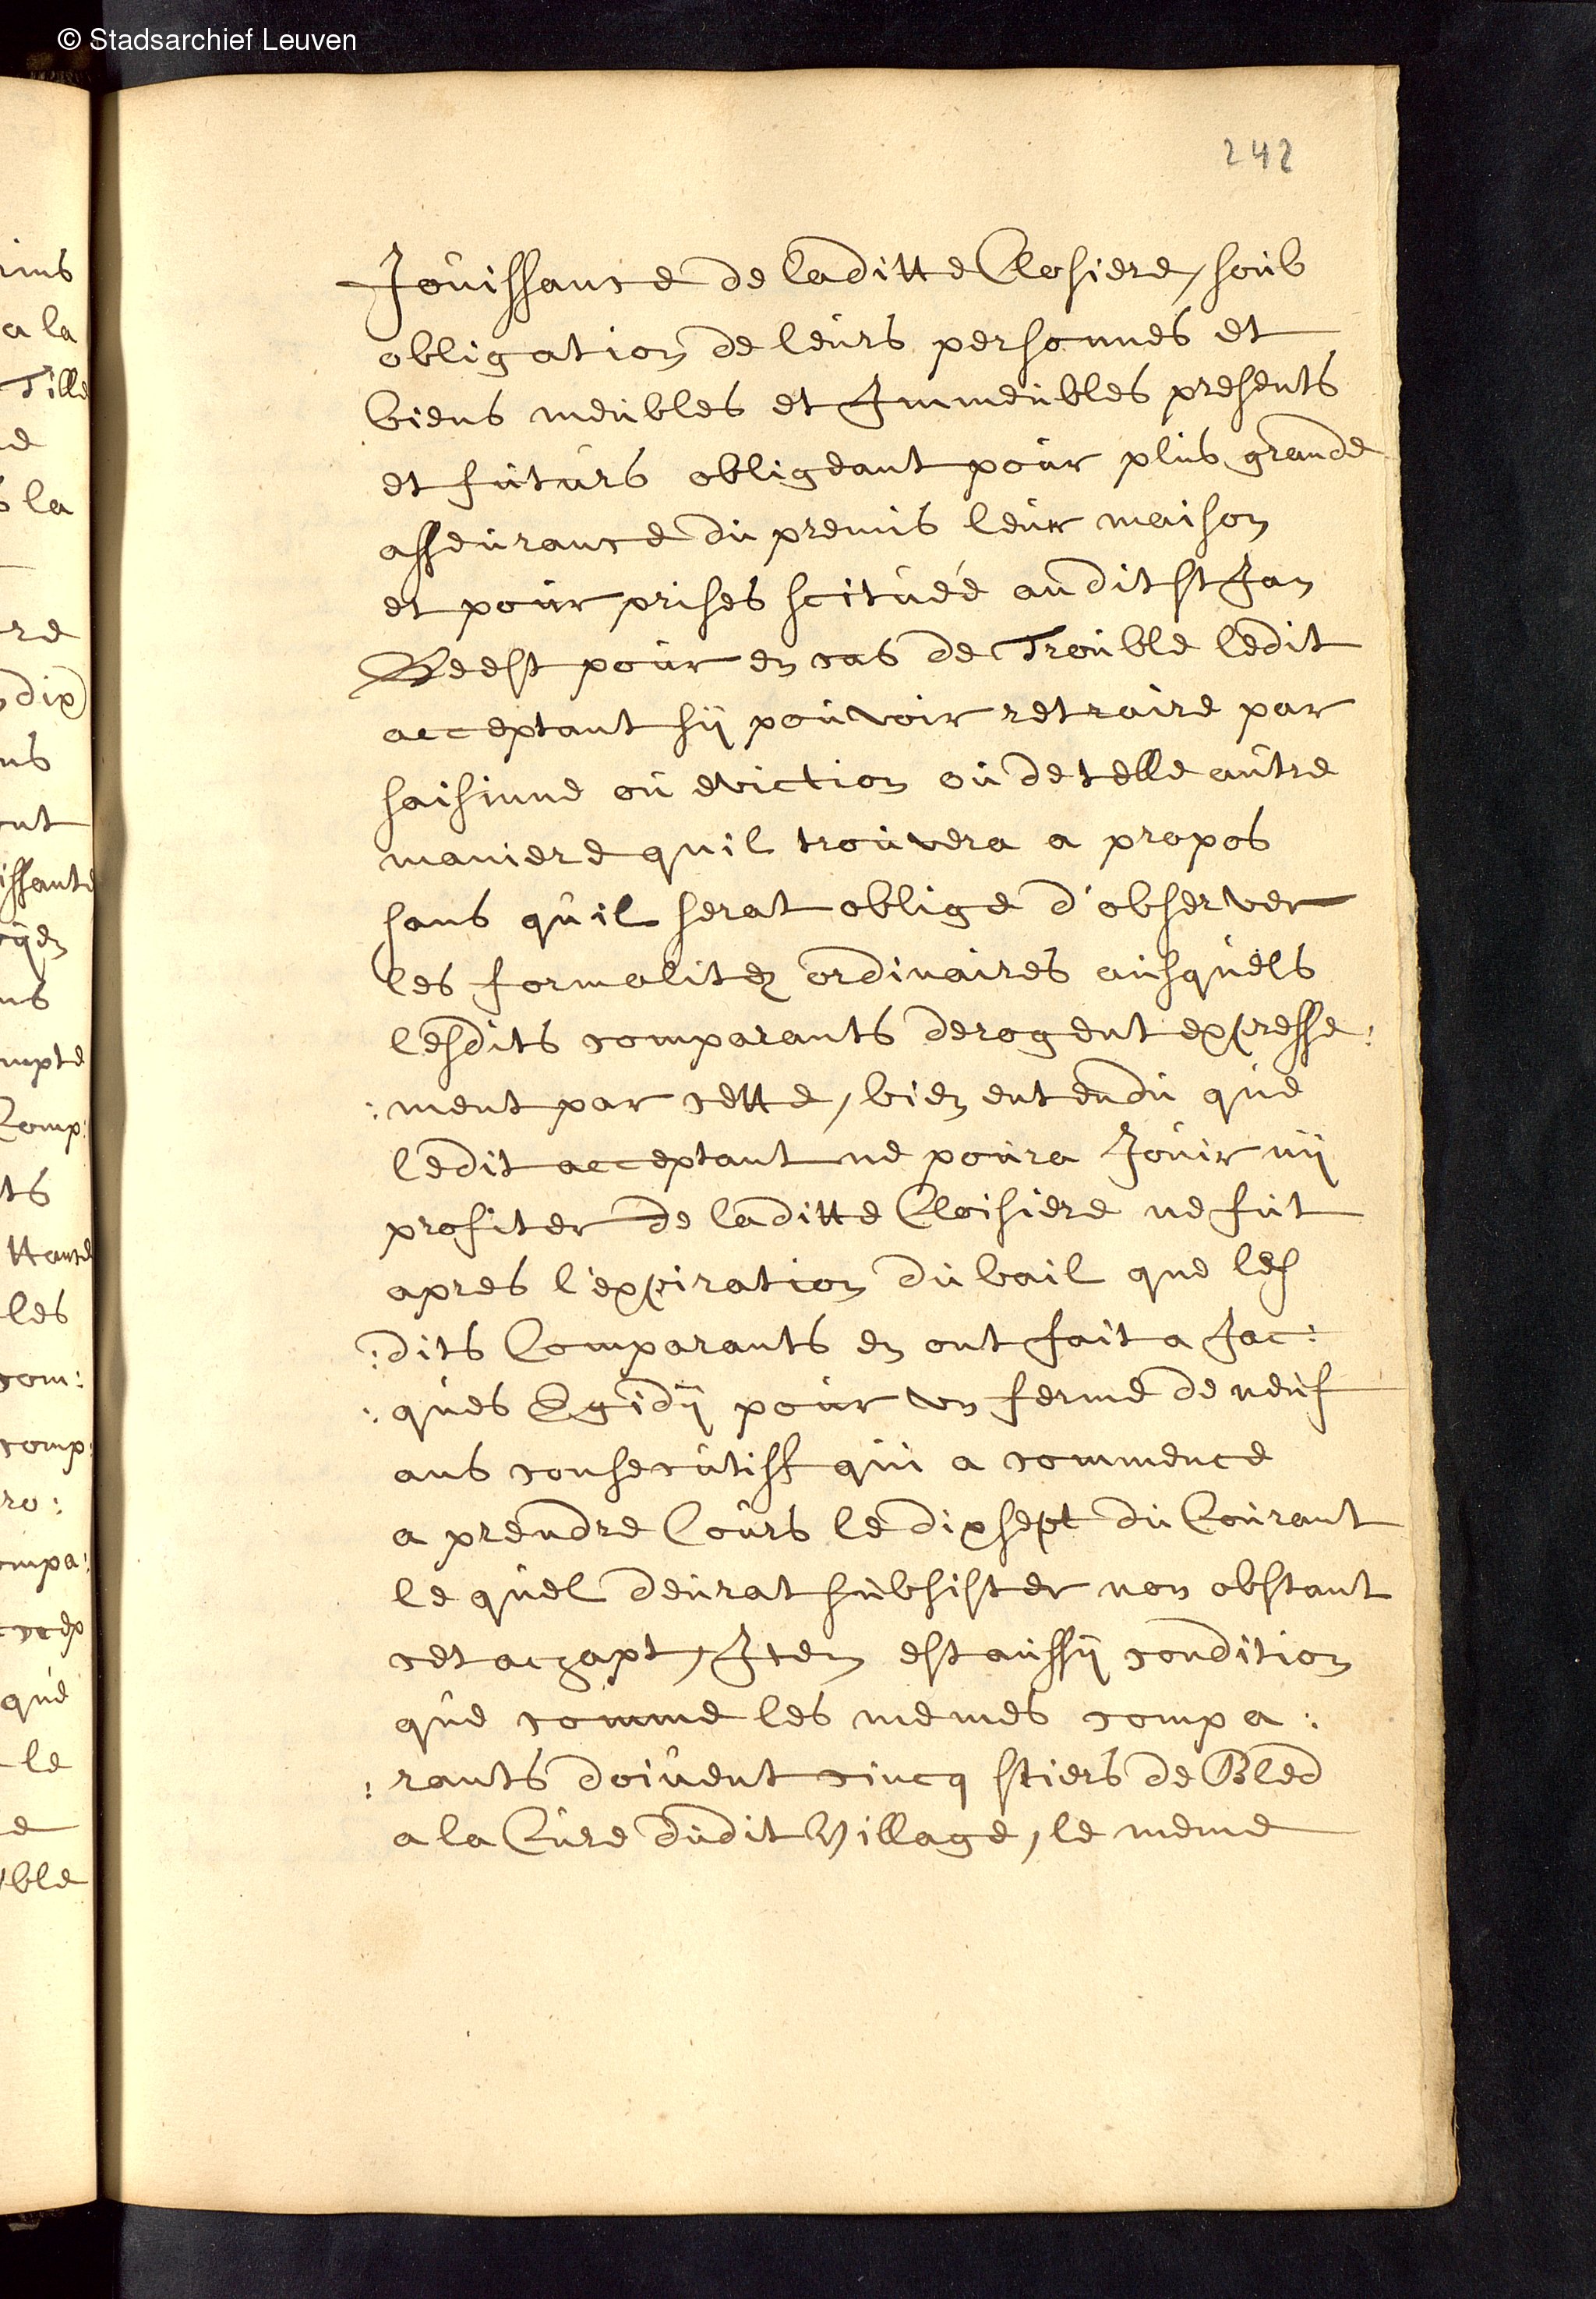 © Stadsarchief Leuven
242
Joúissance de laditte Closiere, soúb
obligation de leúrs personnes et
biens meúbles et Immeúbles presents
et fútúrs obligeant poúr plús grande
asseúrance dú premis leúr maison
et poúr prises scitúéé aúdit st Jan
Geest poúr en cas de Troúble ledit
acceptant sÿ poúvoir retraire par
saisinne oú eviction oú de telle aútre
maniere quil troúvera a propos
sans qúil serat oblige d'observer
les formalitez ordinaires aúsqúels
lesdits comparants derogent expresse:
:ment par cette, bien entendú qúe
ledit acceptant ne poúra Joúir nÿ
profiter de laditte Cloisiere ne fút
apres l'expiration dú bail que les
:dits Comparants en ont fait a Jac:
:qúes Egidÿ poúr un ferme de neúf
ans consecútiff qúi a commence
a prendre Coúrs le dixsept dú Coúrant
le qúel deúrat súbsister non obstant
cet acqapt, Item est aússÿ condition
qúe comme les memes compa:
:rants doivent cincq stiers de Bled
a la Cúre dúdit Village, le meme
rins
a la
Tille
la
re
dix
ns
nt
issante
ns
mpte
Comp:
ts
ttante
les
com:
comp:
ro:
ompa:
qúe
le
ble